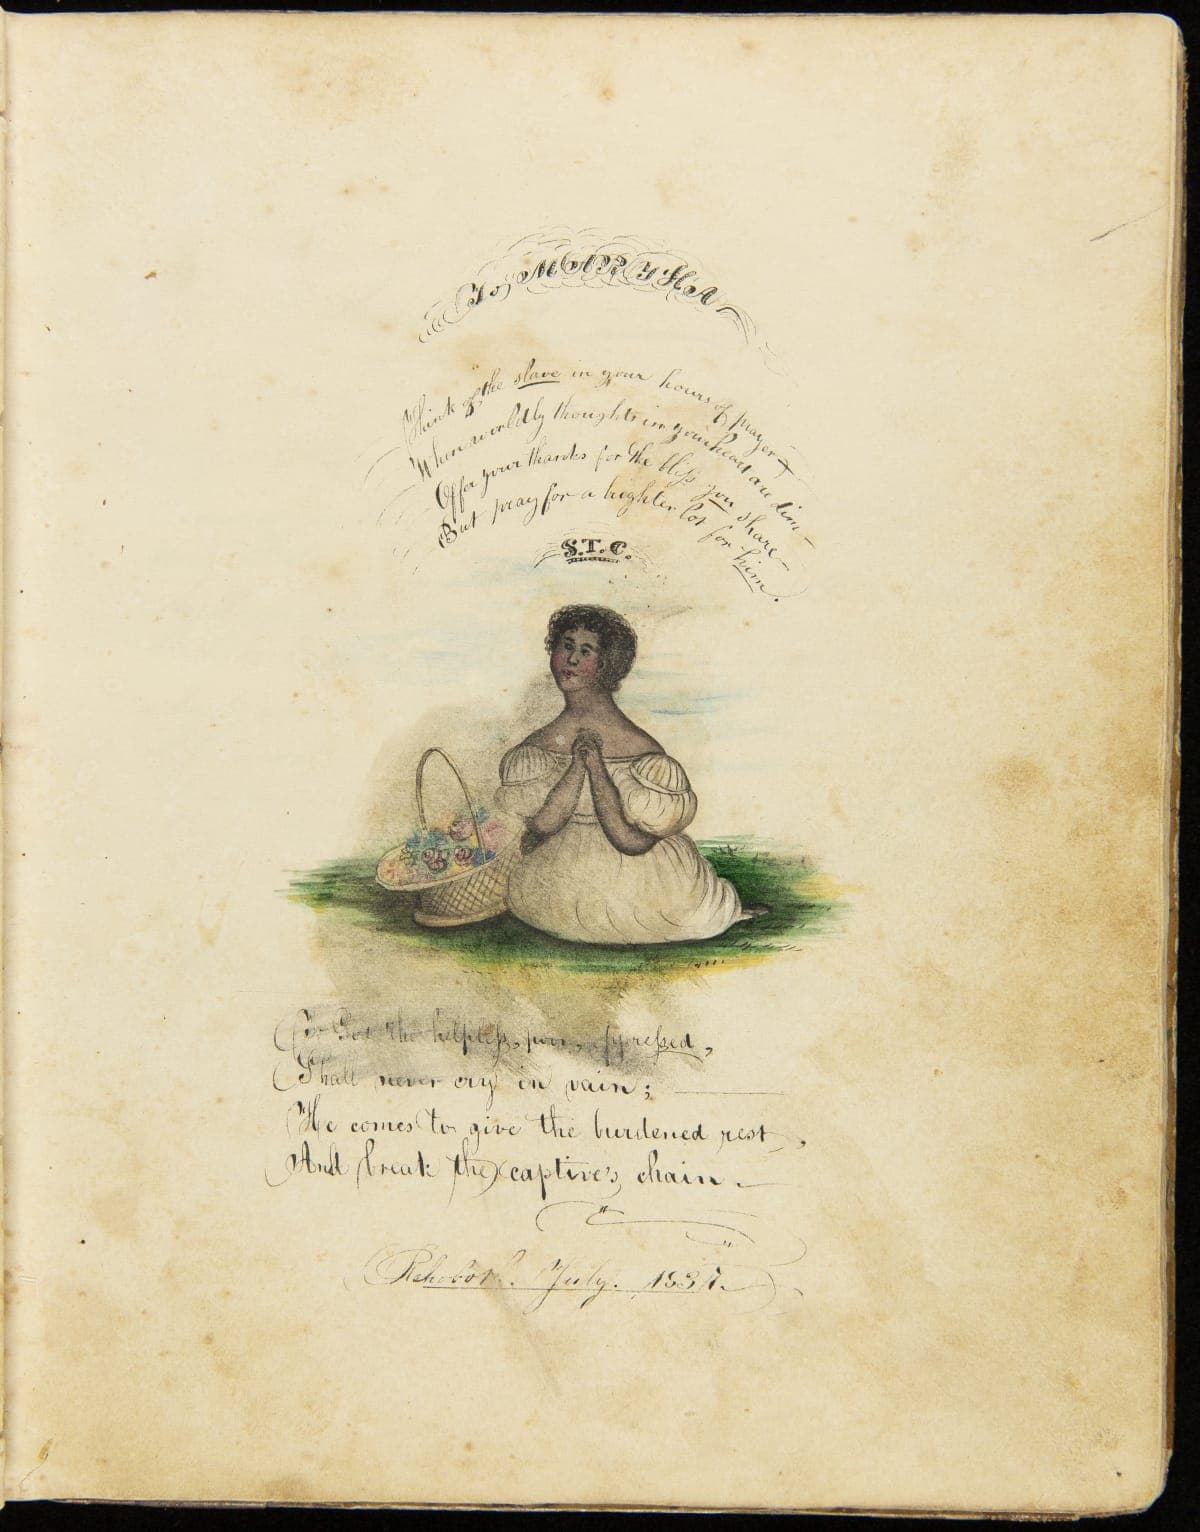 To MARTHA
Think of the slave in your hours of prayer,
When worldly thoughts in your heart are dim —
Offer your thanks for the bliss you share —
But pray for a brighter lot for him.
S.T.C.
To God the helpless, poor, oppressed,
Shall never cry in vain;
He comes to give the burdened rest,
And break the captive's chain.
Rehoboth. July. 1837.